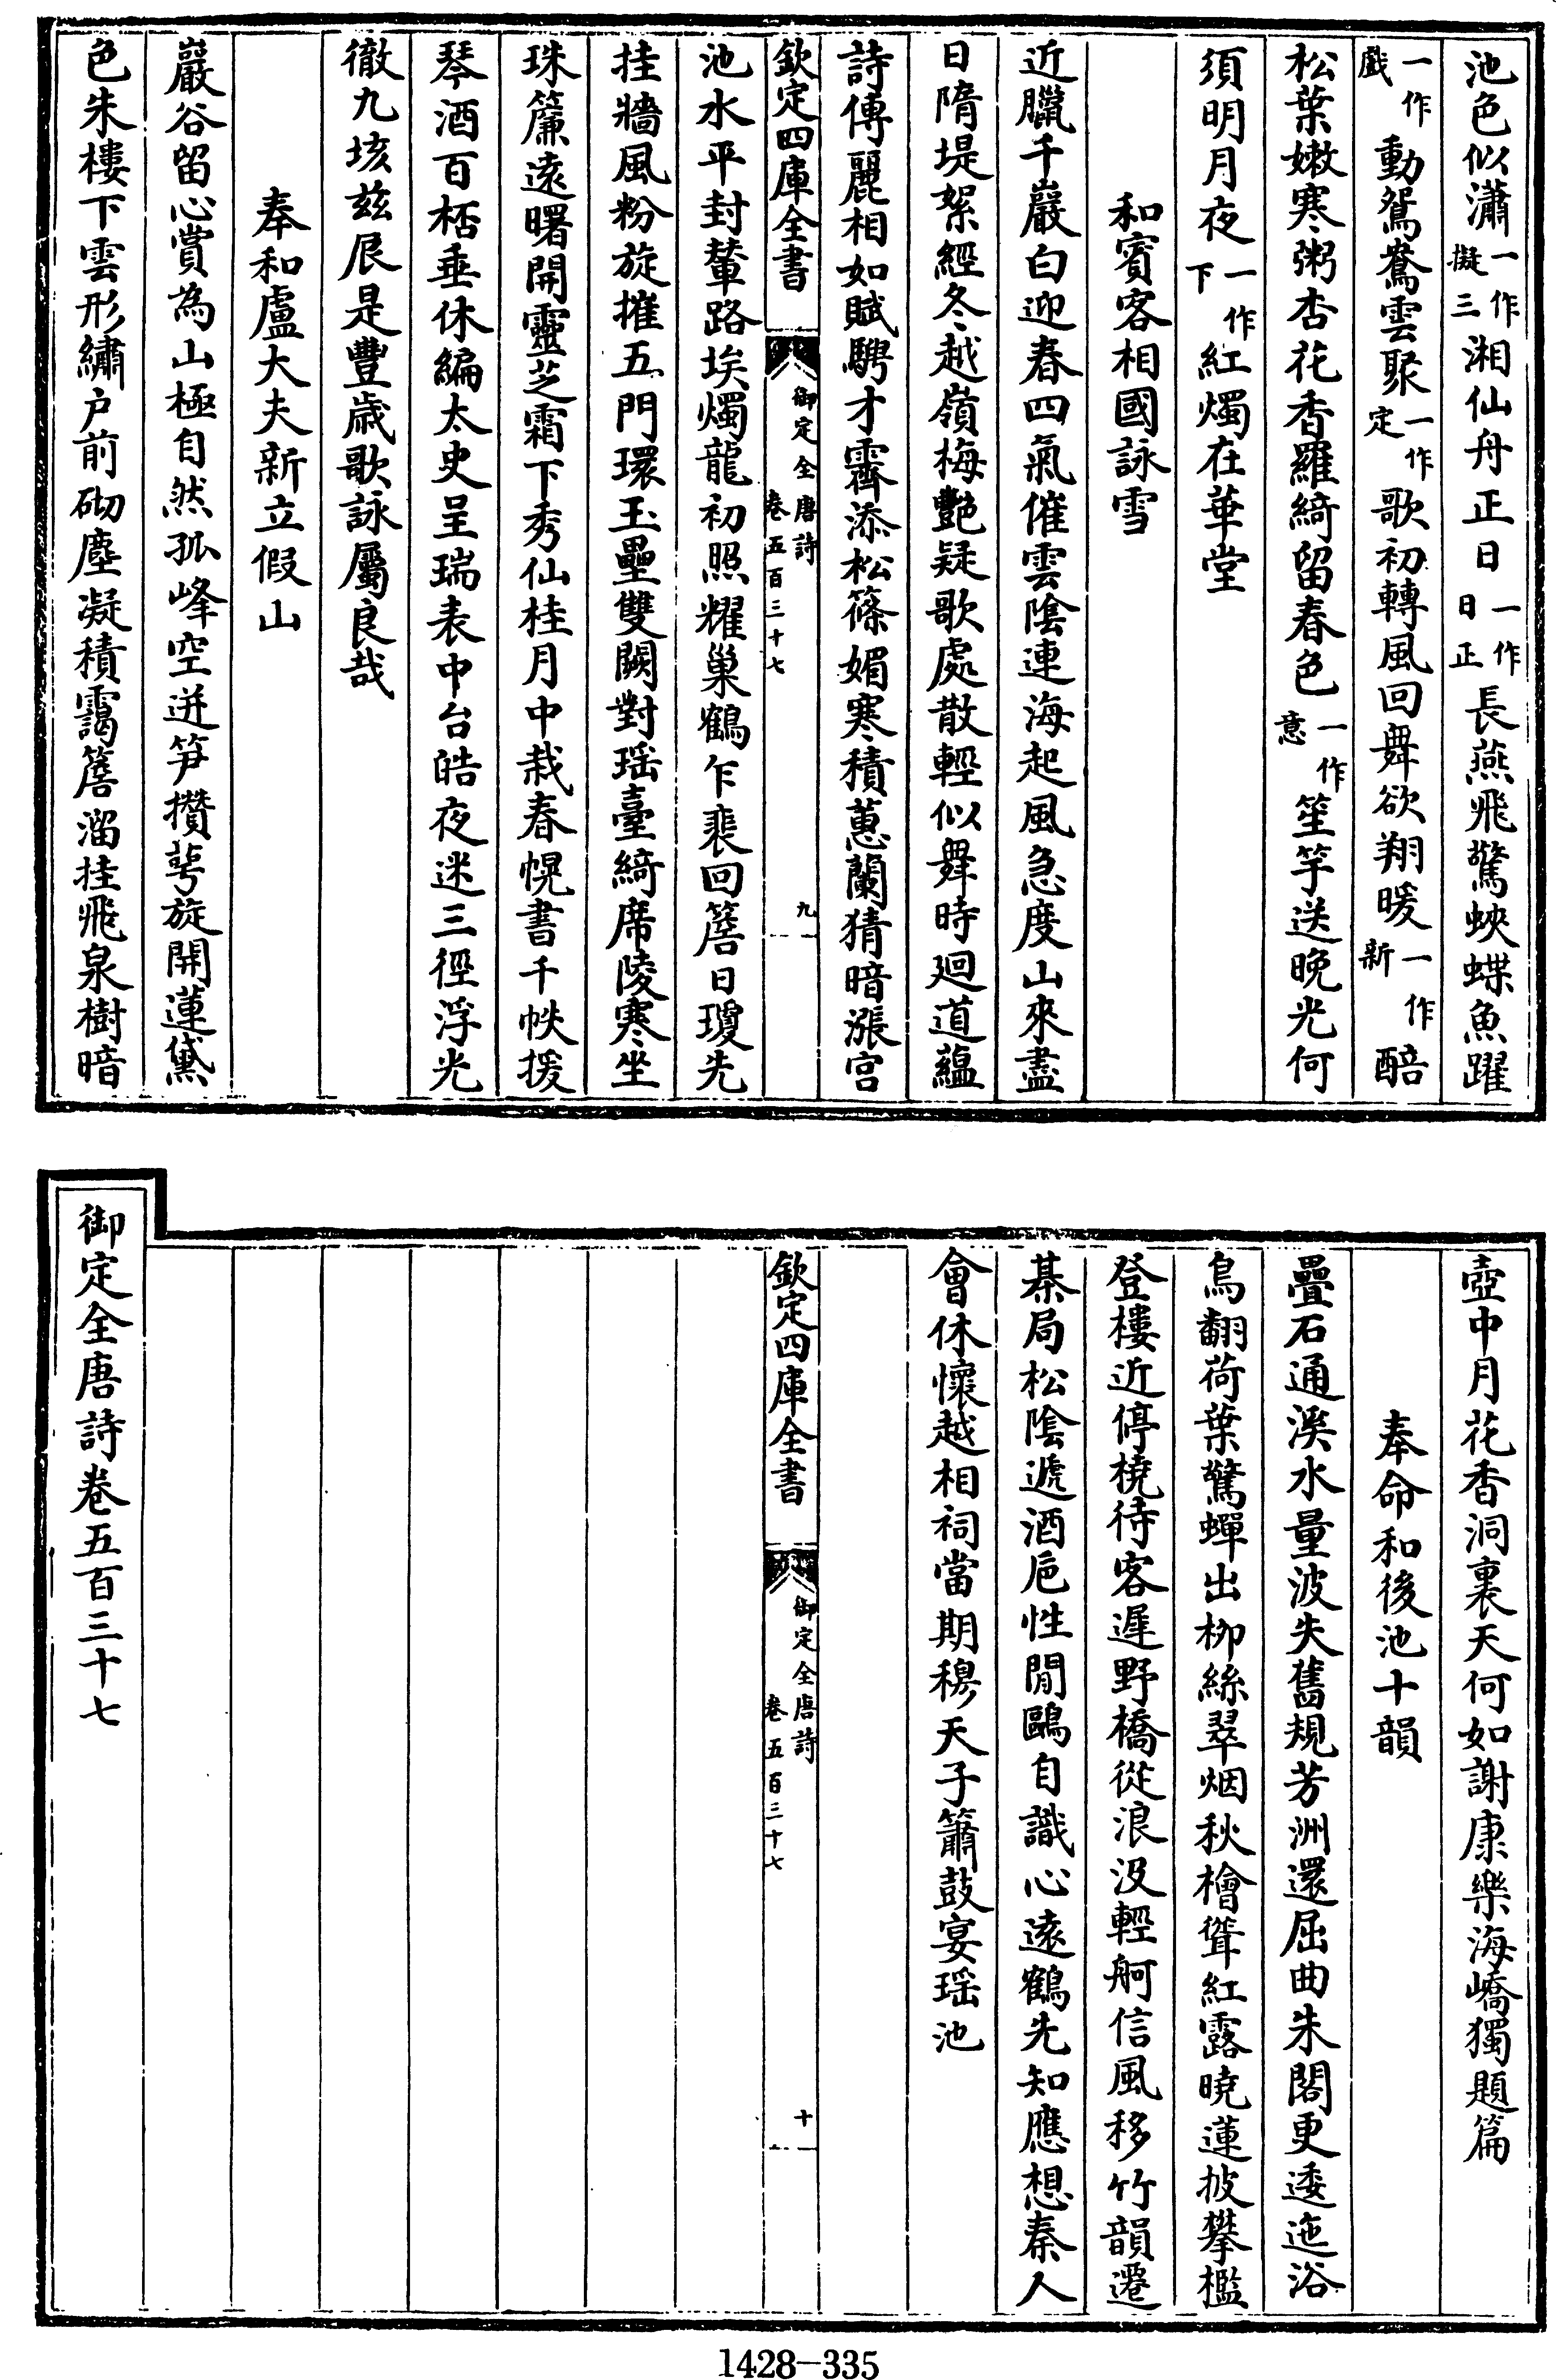 池色似瀟一作擬三湘仙舟正日一作日正長燕飛驚蛺蝶魚躍
戲一作動鴛鴦雲聚一作定歌初轉風回舞欲翔暖一作新醅
松葉嫩寒粥杏花香羅綺留春色一作意笙竽送晚光何
須明月夜一作下紅燭在華堂
和賓客相國詠雪
近臘千巖白迎春四氣催雲陰連海起風急度山來盡
日隋堤絮經冬越嶺梅艷疑歌處散輕似舞時迴道蘊
詩傳麗相如賦騁才霽添松篠媚寒積蕙蘭猜暗漲宮
欽定四庫全書
御定全唐詩
卷五百三十七
九
池水平封輦路埃燭龍初照耀巢鶴乍裴回簷日瓊先
挂牆風粉旋摧五門環玉壘雙闕對瑤臺綺席陵寒坐
珠簾遠曙開靈芝霜下秀仙桂月中栽春幌書千帙援
琴酒百桮垂休編太史呈瑞表中台皓夜迷三徑浮光
徹九垓茲辰是豐歲歌詠屬良哉
奉和盧大夫新立假山
巖谷留心賞為山極自然孤峰空迸筍攢萼旋開蓮黛
色朱樓下雲形繡戶前砌塵凝積靄簷溜挂飛泉樹暗
壺中月花香洞裏天何如謝康樂海嶠獨題篇
奉命和後池十韻
疊石通溪水量波失舊規芳洲還屈曲朱閣更逶迤浴
鳥翻荷葉驚蟬出柳絲翠烟秋檜聳紅露曉蓮披攀檻
登樓近停橈待客遲野橋從浪沒輕舸信風移竹韻遷
棊局松陰遞酒巵性閒鷗自識心遠鶴先知應想秦人
會休懷越相祠當期穆天子簫鼓宴瑤池
欽定四庫全書
御定全唐詩
卷五百三十七
十
御定全唐詩卷五百三十七
1428-335